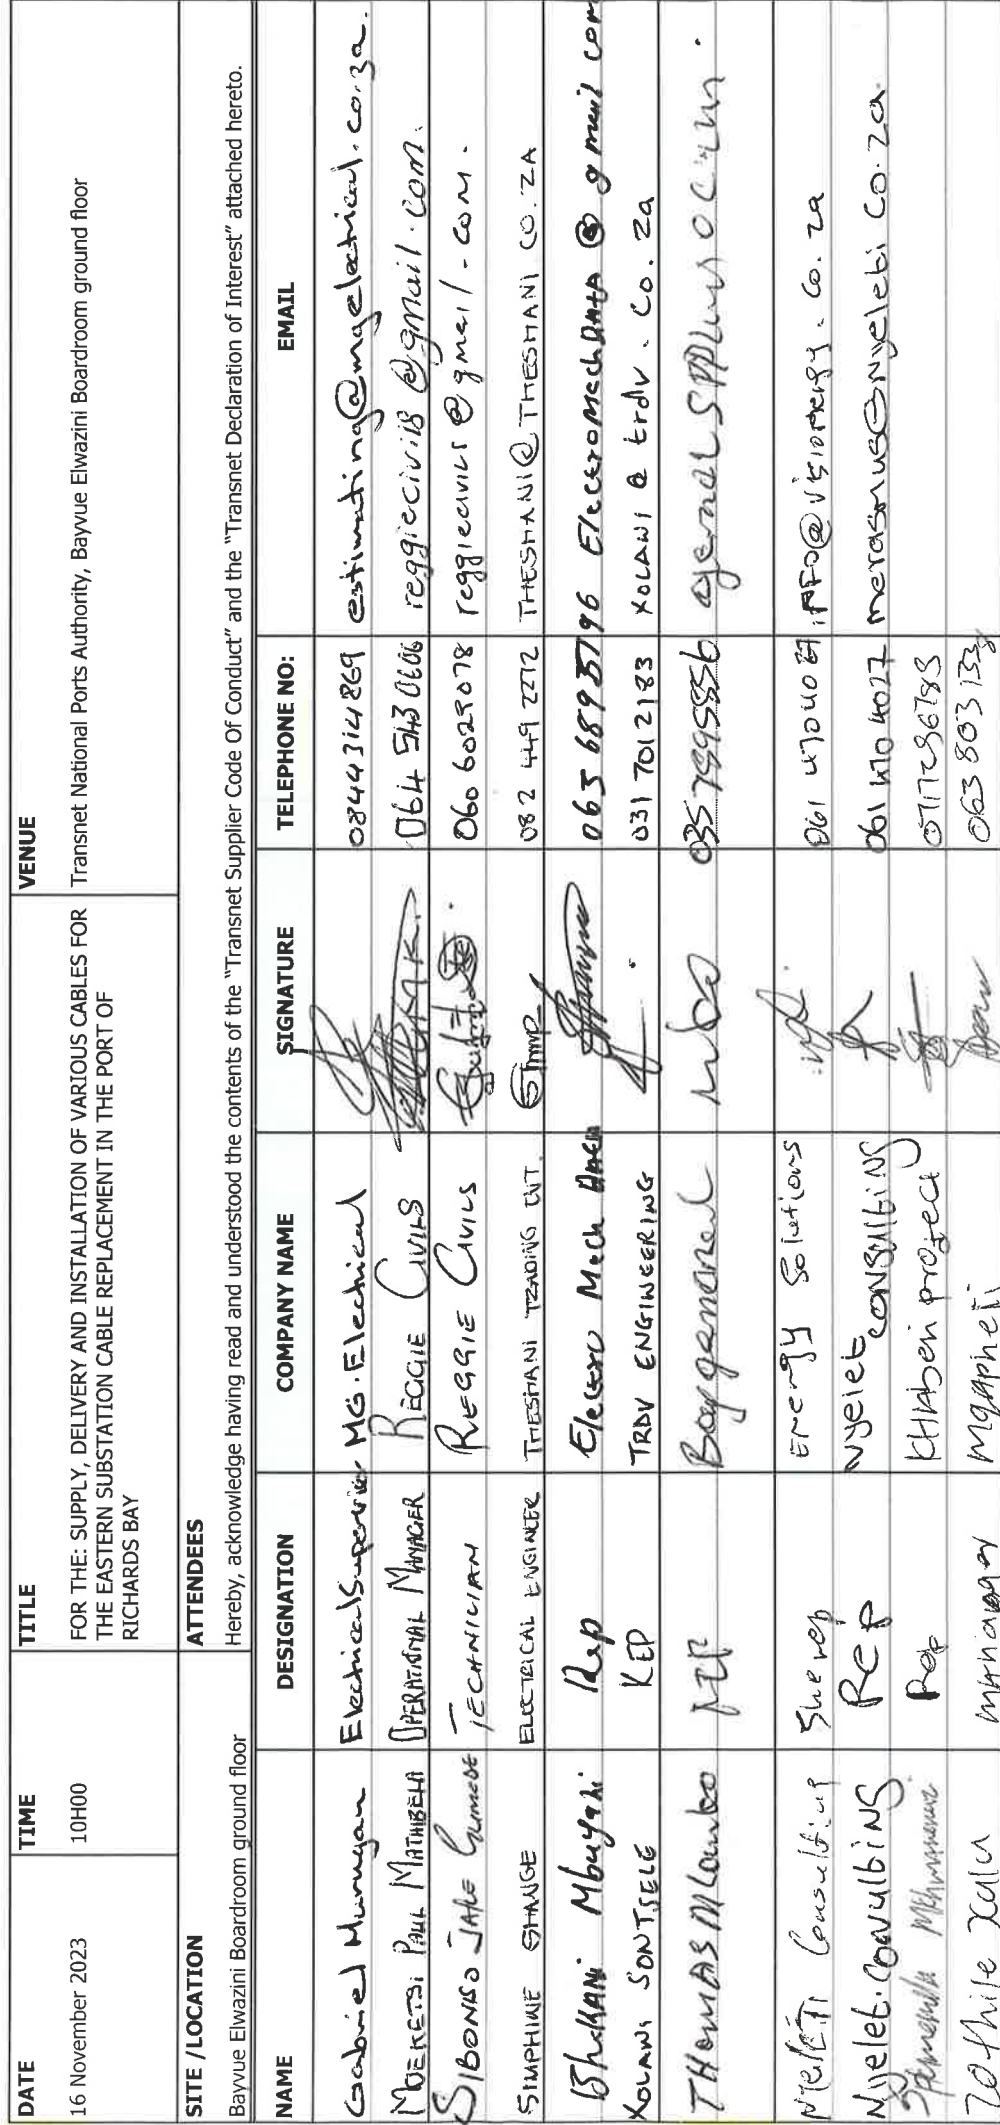 DATE TIME TITLE VENUE
16 November 2023 10H00 FOR THE: SUPPLY, DELIVERY AND INSTALLATION OF VARIOUS CABLES FOR Transnet National Ports Authority, Bayvue Elwazini Boardroom ground floor
THE EASTERN SUBSTATION CABLE REPLACEMENT IN THE PORT OF
RICHARDS BAY
SITE /LOCATION ATTENDEES
Bayvue Elwazini Boardroom ground floor Hereby, acknowledge having read and understood the contents of the "Transnet Supplier Code Of Conduct" and the "Transnet Declaration of Interest" attached hereto.
NAME DESIGNATION COMPANY NAME SIGNATURE TELEPHONE NO: EMAIL
Gabriel Murugan Electrical Supervisor MG.Electrical 0844314869 estimating@mgelectrical.co.za.
MOEKETSI PAUL MATHIBELA OPERATIONAL MANAGER REGGIE CIVILS 064 543 0606 reggiecivils@gmail.com.
SIBONISO JAPIE GUMEDE TECHNICIAN REGGIE CIVILS 060 6029078 reggiecivils@gmail.com.
SIMPHIWE SHANGE ELECTRICAL ENGINEER THESHANI TRADING ENT. 082 449 2272 THESHANI@THESHANI CO.ZA
Bhekani Mbuyazi Rep Electro Mech 063 6895796 ElectroMech @gmail com
XOLANI SONTSELE REP TRDV ENGINEERING 031 7012183 XOLANI @ trdv. Co. Za
THOMAS Mlambo 035 7995556
Consulting Energy Solutions 061 4704027 .Co. za
Nyelet. Rep Nyelet consulting 061 470 4027 Co.za
Rep Khiaben project
Zothile Xulu manager Mqapheli 063 803